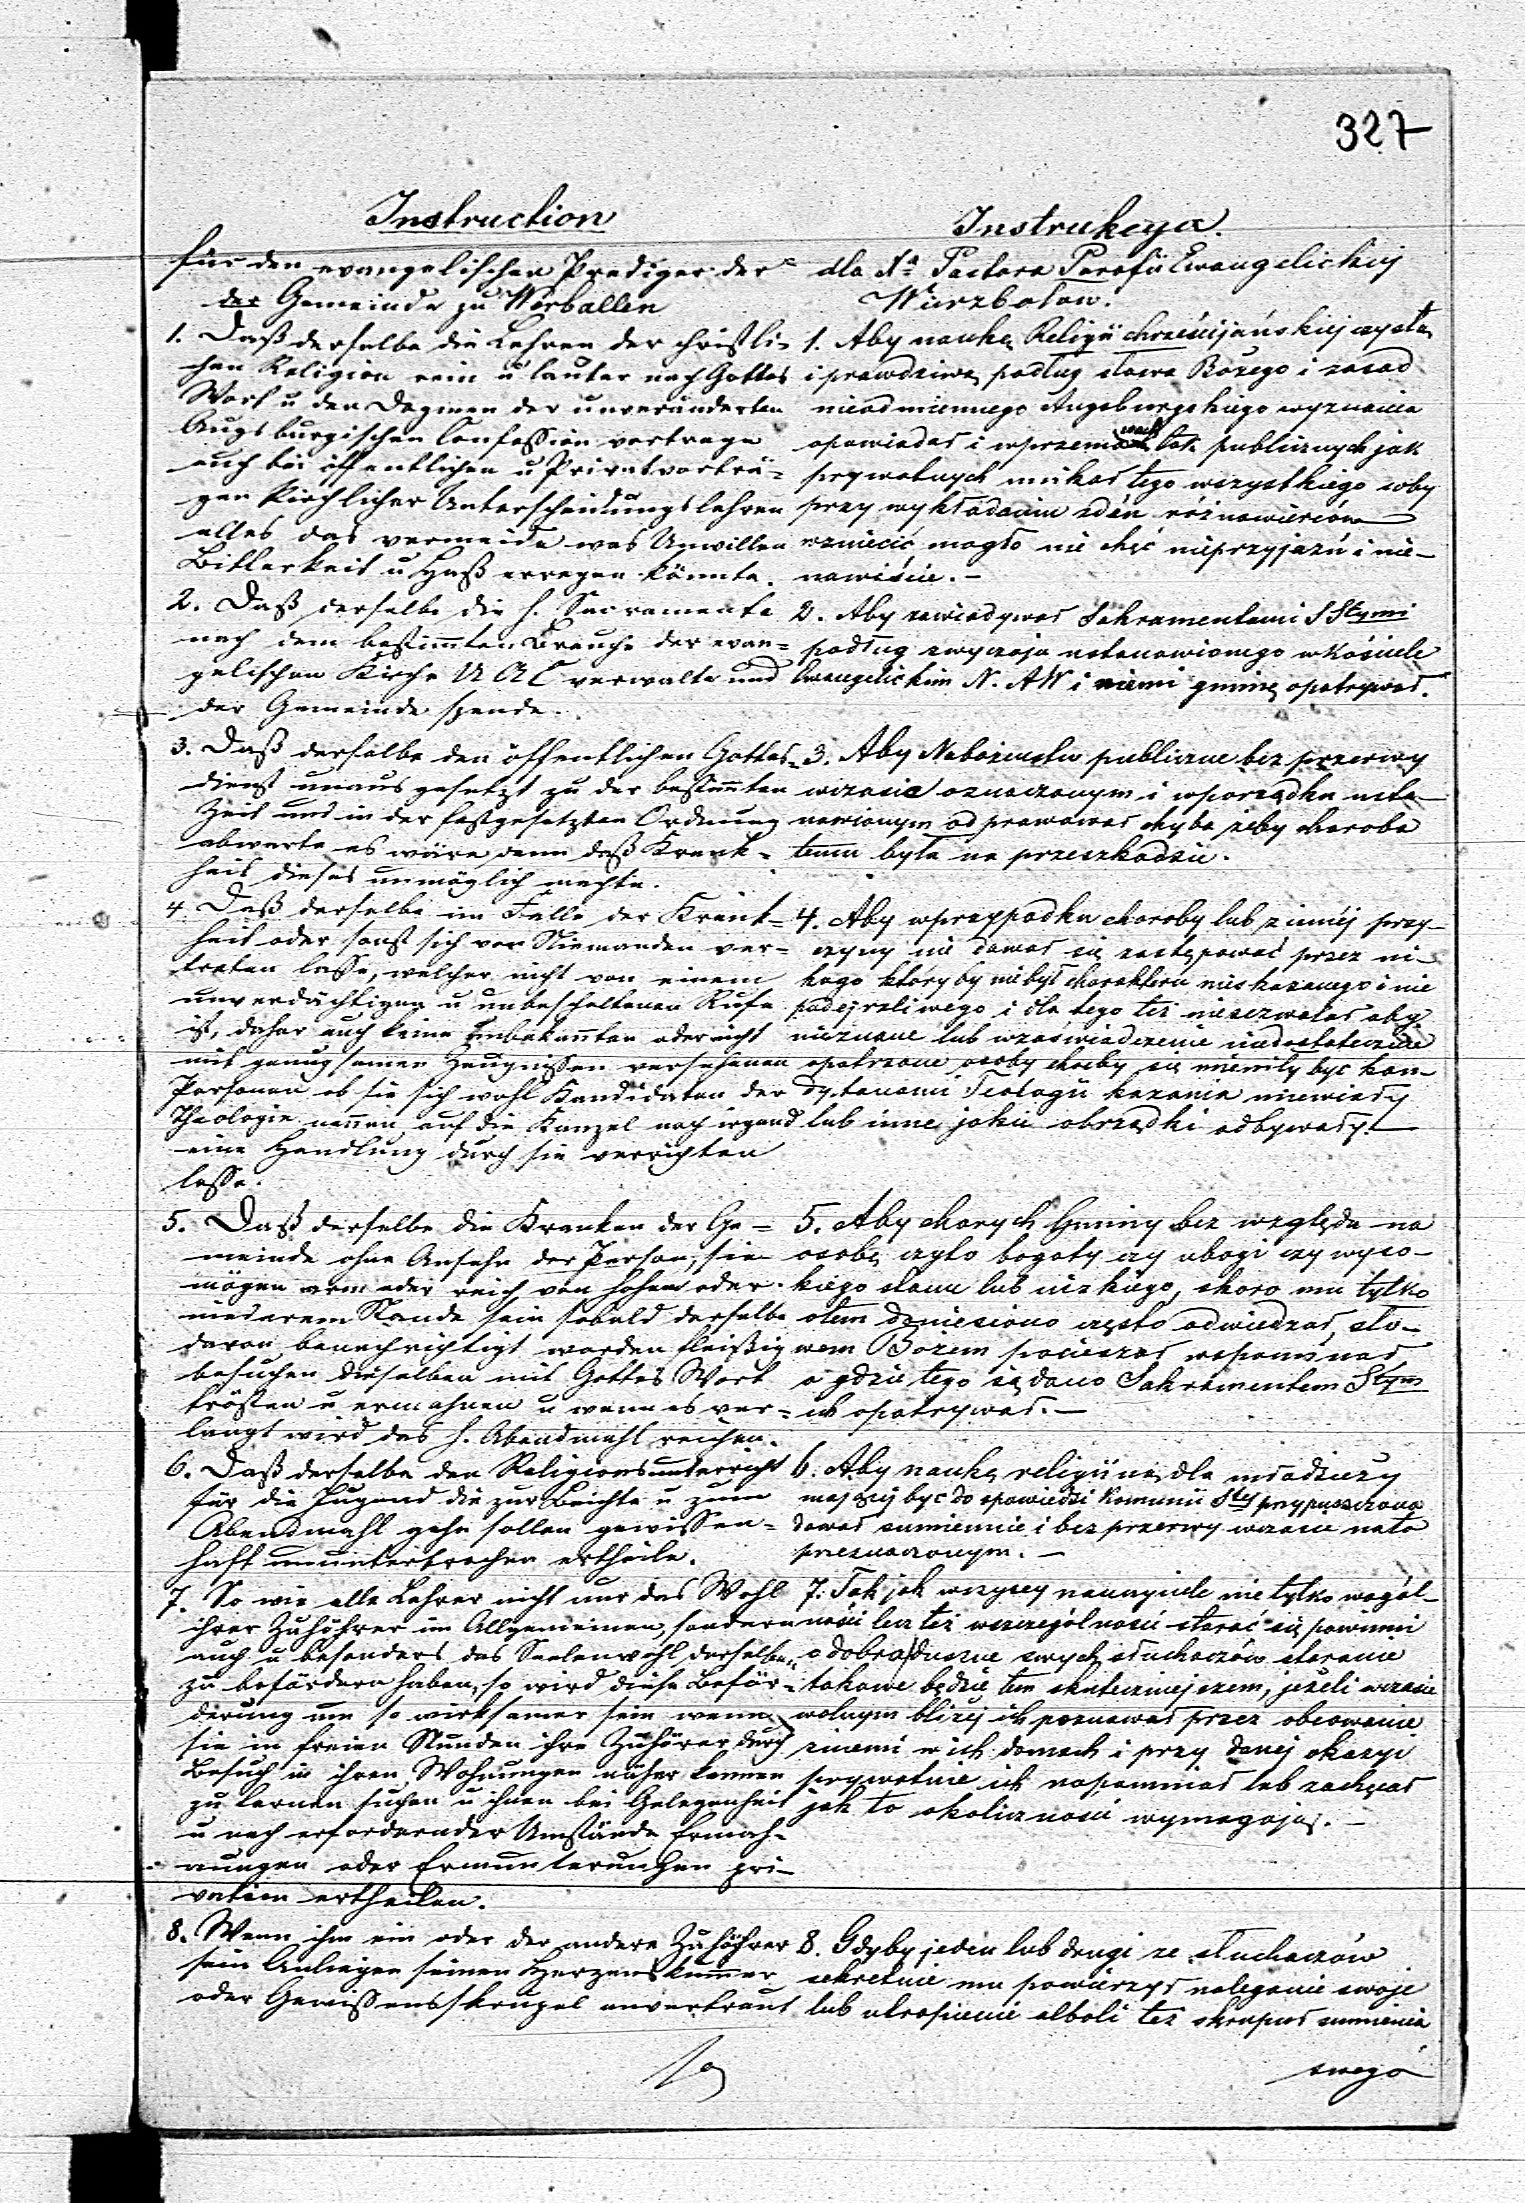 327
Instruction
für den evangelischen Prediger der
der Gemeinde zu Wirballen
1. Daß derselbe die Lehren der christli-
chen Religion rein u lauter nach Gottes
Wort u den Dogmen der unveränderten
Augsburgischen Confession vortrage
auch bei öffentlichen u Privatvorträ-
gen kirchlicher Unterscheidungslehren
alles das vermeide was Unwillen
Bitterkeit u Haß erregen könnte.
2. Daß derselbe die h. Sacramente
nach dem bestimmten Brauche der evan-
gelischen Kirche U A C verwalte und
der Gemeinde spende.
3. Daß derselbe den öffentlichen Gottes-
dienst unausgesetzt zu der bestimmten
Zeit und in der festgesetzten Ordnung
abwarte es wäre denn daß Krank-
heit dieses unmöglich mache.
4. Daß derselbe im Falle der Krank-
heit oder sonst sich von Niemanden ver-
treten lasse, welcher nicht von einem
unverdächtigen u unbescholtenen Rufe
ist, daher auch keine Unbekannten oder nicht
mit genugsamen Zeugnissen versehenen
Personen ob sie sich wohl Kandidaten der
Theologie nennen auf die Kanzel noch irgend
eine Handlung durch sie verrichten
lasse.
5. Daß derselbe die Kranken der Ge-
meinde ohne Ansehn der Person, sie
mögen arm oder reich von hohem oder
niederem Stande sein sobald derselbe
davon benachrichtigt worden fleißig
besuchen dieselben mit Gottes Wort
trösten u ermahnen u wenn es ver-
langt wird das h. Abendmahl reichen.
6. Daß derselbe den Religionsunterricht
für die Jugend die zur Beichte u zum
Abendmahl gehn sollen gewissen-
haft ununterbrochen ertheile.
7. So wie alle Lehrer nicht nur das Wohl
ihrer Zuhöhrer im Allgemeinen, sondern
auch u besonders das Seelenwohl derselben
zu befördern haben, so wird diese Beför-
derung um so wirksamer sein wenn
sie in freien Stunden ihre Zuhörer durch
Besuch in ihren Wohnungen näher kennen
zu lernen suchen u ihnen bei Gelegenheit
u nach erfordernder Umstände Ermah-
nungen oder Ermunterungen pri-
vatim ertheilen.
8. Wenn ihm ein oder der andere Zuhöhrer
sein Anliegen seinen Herzenskummer
oder Gewissensskrupel anvertraut
so
Instrukcya.
dla Xa Pastora Parafii Ewangelickiej
Wierzbołow.
1. Aby naukę Religii chrześcijańskiej czystą
i prawdziwą podług słowa Bożego i zasad
nieodmiennego Augsburgskiego wyznania
opowiadał i w przemowach tak publicznych jak
prywatnych unikał tego wszystkiego coby
przy wykładaniu zdań różnowierców
wzniecić mogło nie chęć nieprzyjaźń i nie-
nawiście. -
2. Aby zawiadywał Sakramentami SStymi
podług zwyczaju ustanowionego w Kościele
Ewangelickim N. A W i niemi gminę opatrywał.
3. Aby Nabożeństwo publiczne bez przerwy
w czasie oznaczonym i w porządku usta-
nowionym od prawował chyba żeby choroba
temu była na przeszkodzie.
4. Aby w przypadku choroby lub z innéj przy-
czyny nie dawał się zastępować przez ni-
kogo który by nie był charakteru nieskażonego i nie
podejrzliwego i dla tego też niezezwalał aby
nieznane lub w zaświadczenie niedostatecznie
opatrzone osoby choćby się mieniły być kan-
dytatami Teologii kazania miewiały
lub inne jakie obrządki odbywały. -
5. Aby chorych Gminy bez względu na
osobę czyto bogaty czy ubogi czy wyso-
kiego stanu lub nizkiego, skoro mu tylko
otem doniesiono często odwiedzał, sło-
wem Bożem pocieszał napominał
a gdzie tego żądano Sakramentem Stym
ich opatrywał. -
6. Aby naukę religijną dla młodzieży
mającej być do spowiedzi Komunii Stej przypuszczona
dawał sumiennie i bez przerwy w czasie nato
przeznaczonym. -
7. Tak jak wszyscy nauczyciele nie tylko wogól-
ności lecz też w szczególności starać się powinni
o dobro duszne swych słuchaczów staranie
takowe będzie tem skuteczniejszem, jeżeli w czasie
wolnym bliżej ich poznawał przez obcowanie
z niemi w ich domach i przy danej okazyi
prywatnie ich napominał lub zachęcał
jak to okoliczności wymagają. -
8. Gdyby jeden lub drugi ze słuchaczów
sekretnie mu powierzył naleganie swoje
lub utrapienie alboli też skrupuł sumienia
swego